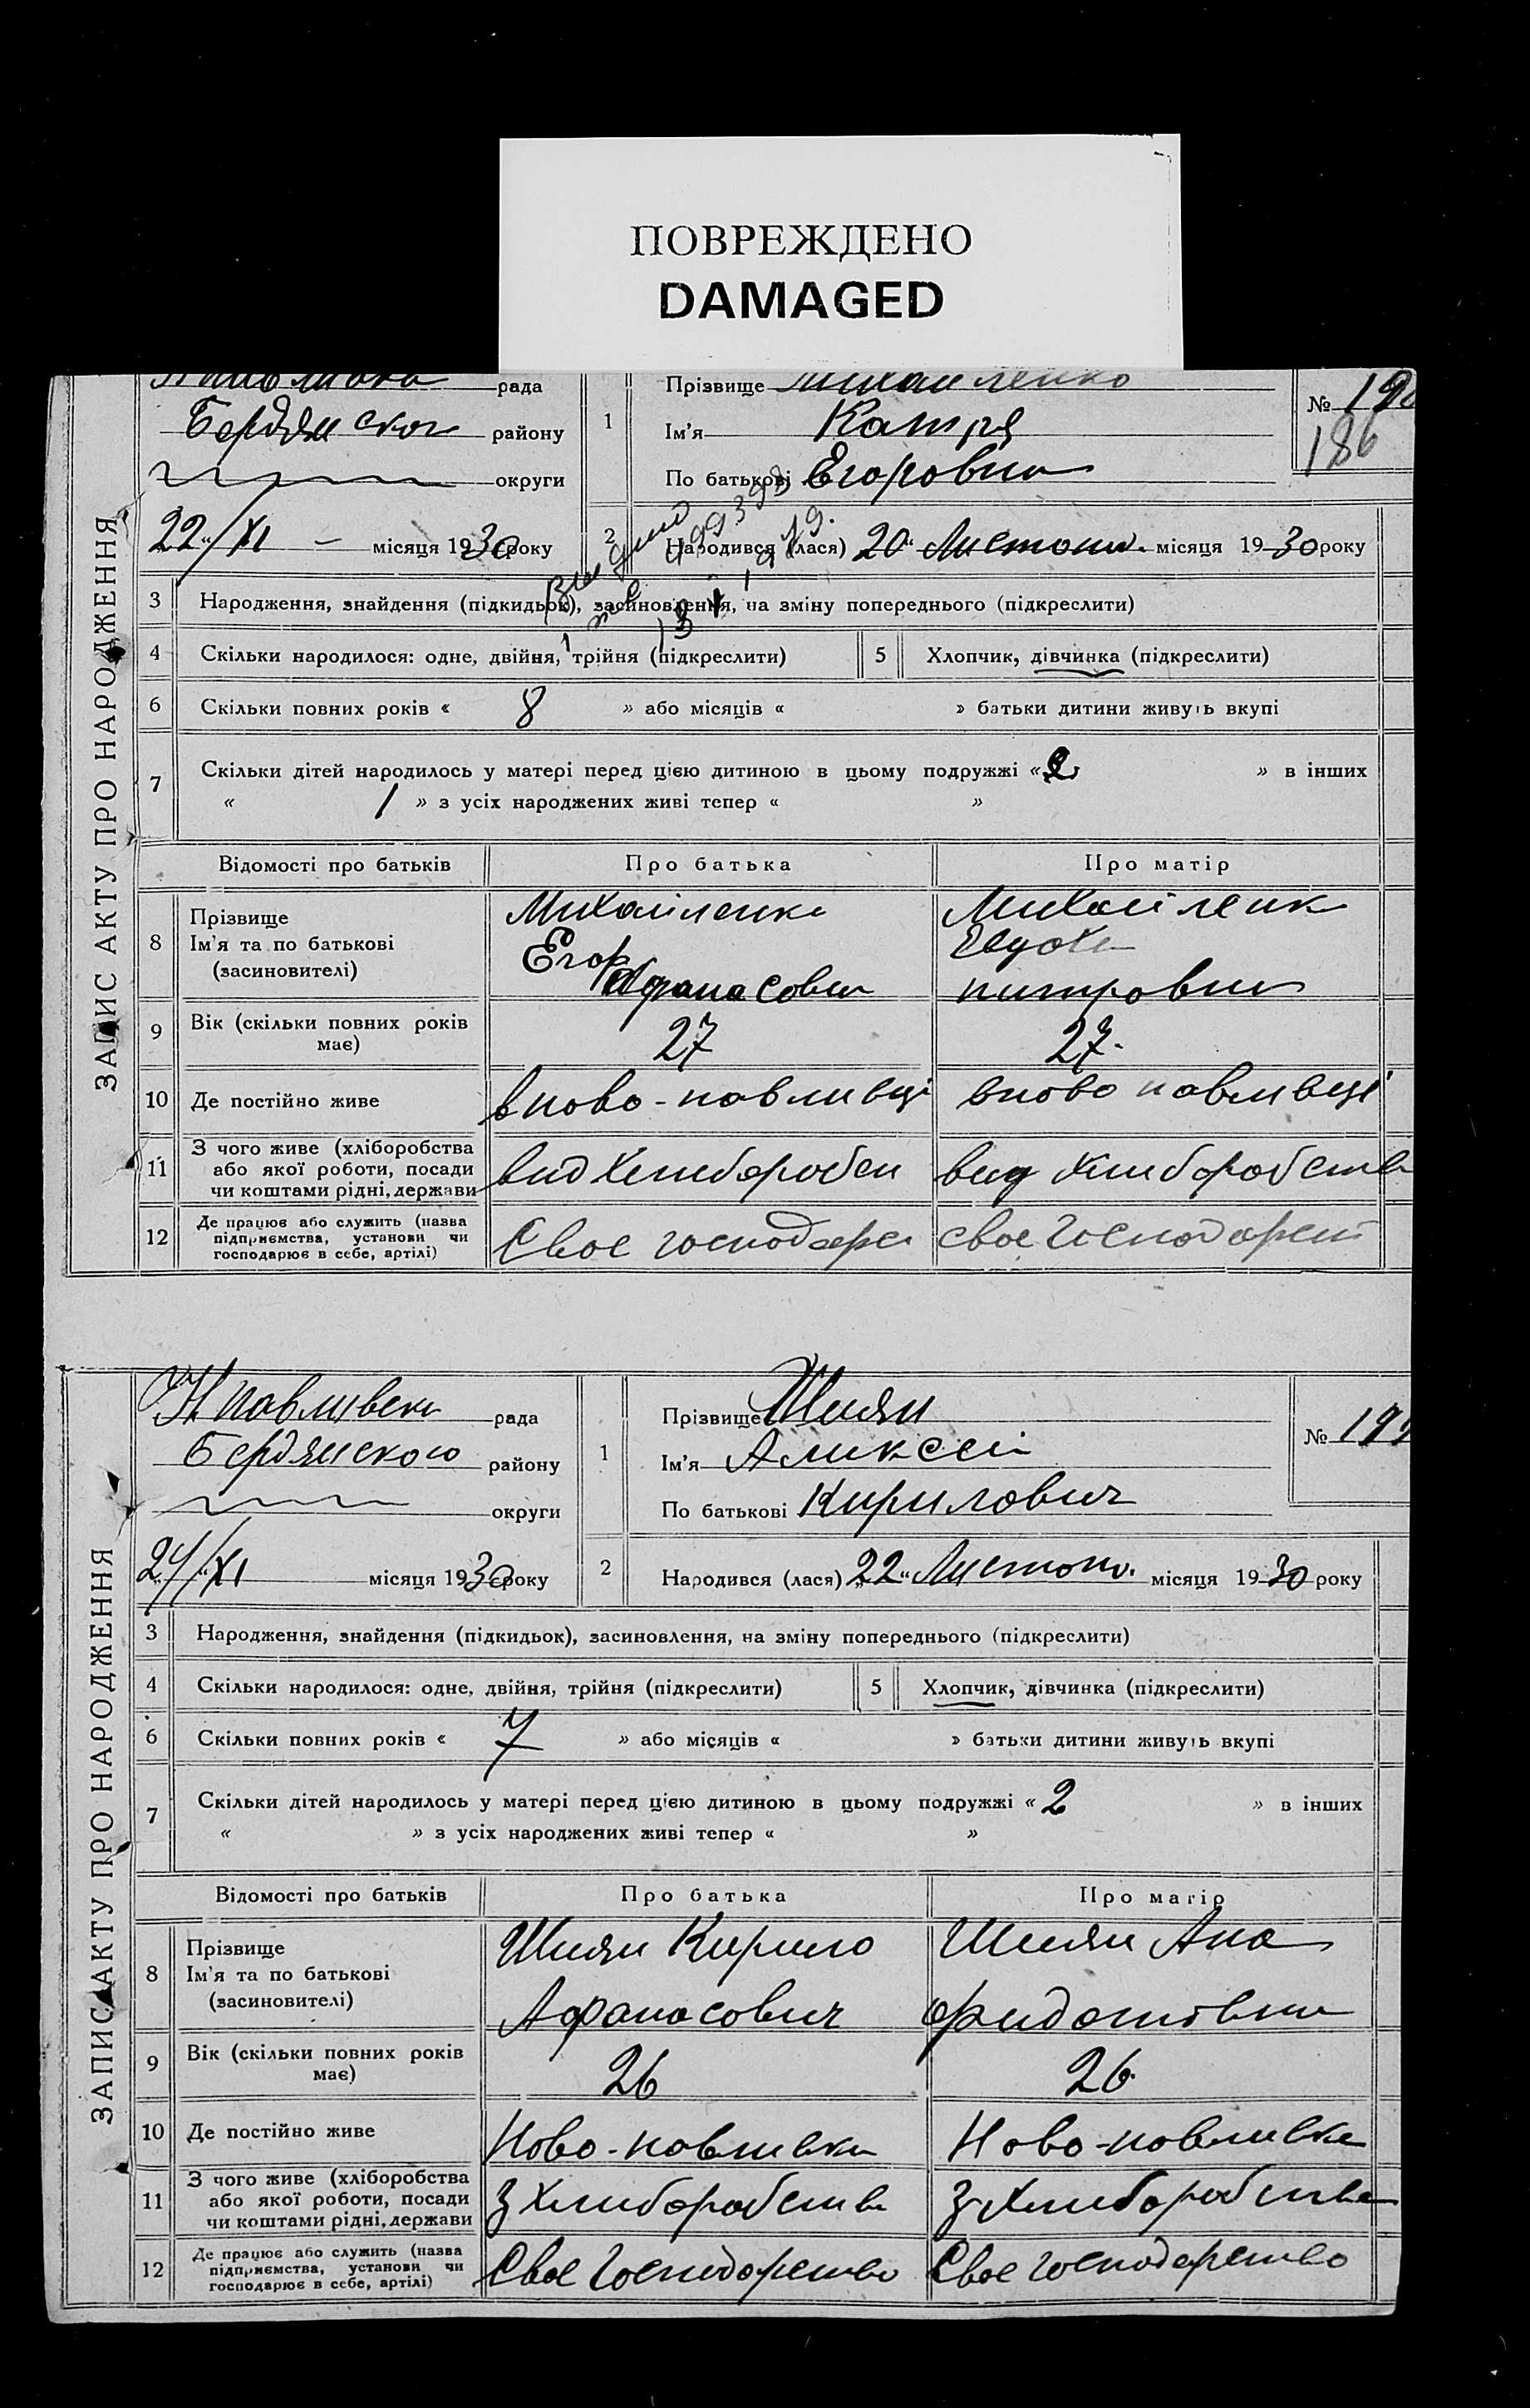 ПОВРЕЖДЕНО
DAMAGED
ЗАПИС АКТУ ПРО НАРОДЖЕННЯ
рада
Бердянског району
округи
22/XI місяця 1930 року
1
Прізвище Михайленко
Ім'я Катря
По батькові Егоровна
№
186
2
Народився (лася) 20 Листопад. місяця 1930 року
3 Народження, знайдення (підкидьок), засиновлення, на зміну попереднього (підкреслити)
4 Скільки народилося: одне, двійня, трійня (підкреслити) 5 Хлопчик, дівчинка (підкреслити)
6 Скільки повних років « 8 » або місяців « » батьки дитини живуть вкупі
7 Скільки дітей народилось у матері перед цією дитиною в цьому подружжі « 2 » в інших
« 1 » з усіх народжених живі тепер « »
Відомості про батьків Про батька Про матір
8
Прізвище
Ім'я та по батькові
(засиновителі)
Михайленко
Егор
Афанасович
Михайленк
питровна
9 Вік (скільки повних років
має)
27 27.
10 Де постійно живе вново-павливці вново павливці
11 З чого живе (хліборобства
або якої роботи, посади
чи коштами рідні, держави
вид Хлиборобст вид Хлиборобства
12 Де працює або служить (назва
підприємства, установи чи
господарює в себе, артілі)
Свое господарс свое Господарст
ЗАПИС АКТУ ПРО НАРОДЖЕННЯ
Н Павливська рада
Бердянского району
округи
24/XI місяця 1930 року
1
Прізвище Шиян
Ім'я Аликсей
По батькові Кирилович
№
2
Народився (лася) 22 Листопа. місяця 1930 року
3 Народження, знайдення (підкидьок), засиновлення, на зміну попереднього (підкреслити)
4 Скільки народилося: одне, двійня, трійня (підкреслити) 5 Хлопчик, дівчинка (підкреслити)
6 Скільки повних років « 7 » або місяців « » батьки дитини живуть вкупі
7 Скільки дітей народилось у матері перед цією дитиною в цьому подружжі « 2 » в інших
« » з усіх народжених живі тепер « »
Відомості про батьків Про батька Про матір
8
Прізвище
Ім'я та по батькові
(засиновителі)
Шиян Кирило
Афанасович
Шиян Ана
Фидотовна
9 Вік (скільки повних років
має)
26 26
10 Де постійно живе Ново-павливка Ново-павливка
11 З чого живе (хліборобства
або якої роботи, посади
чи коштами рідні, держави
З Хлиборобства З Хлиборобства
12 Де працює або служить (назва
підприємства, установи чи
господарює в себе, артілі)
Свое Господарство Свое господарство